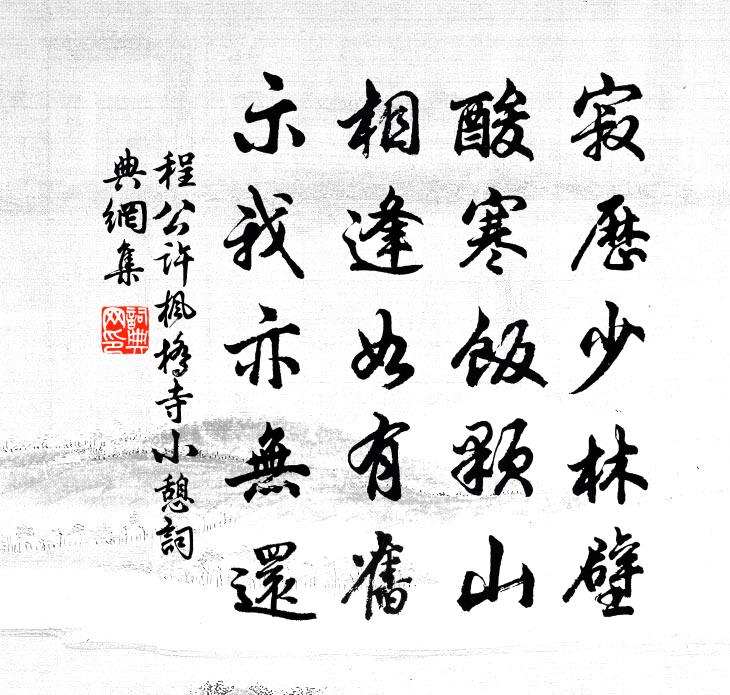 寂歷少林壁
酸寒飯顆山
相逢如有舊
示我亦無還
程公許楓橋寺小憩詞
典網集
詞典網印